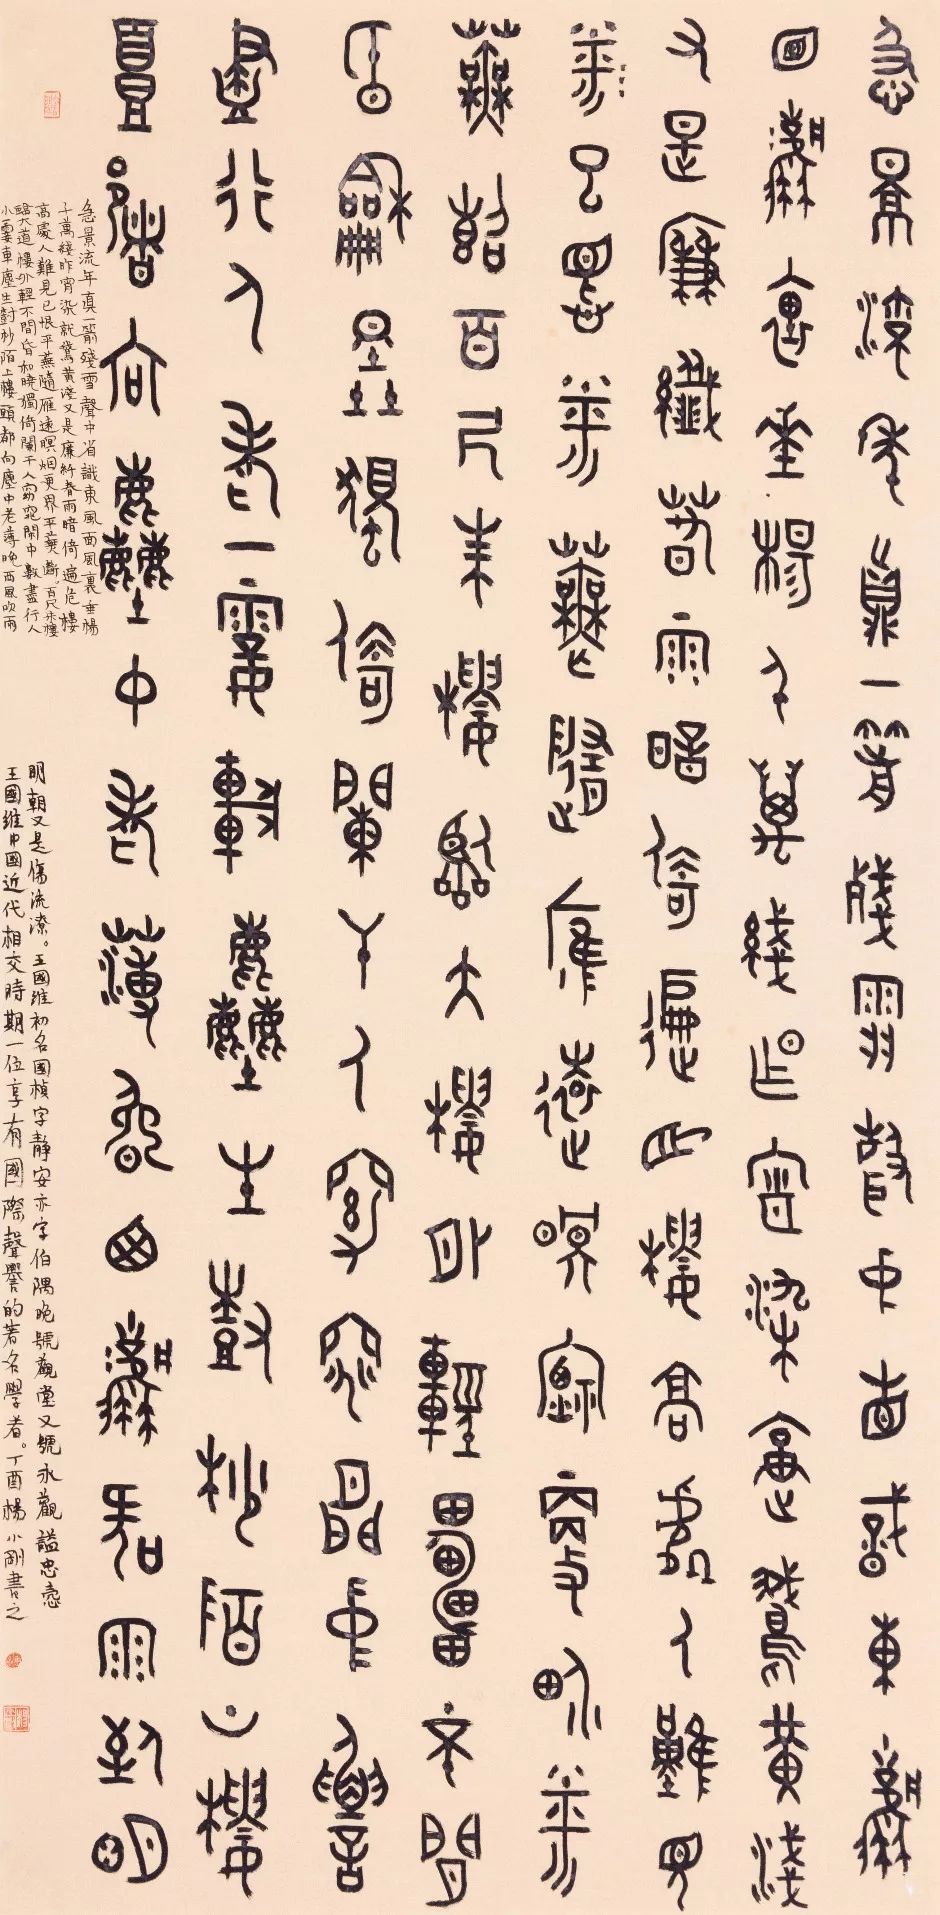 急景流年真一箭殘雪聲中省識東風
面風裏垂楊千萬綫昨宵染就鵞黃淺
又是廉纖春雨暗倚遍危樓高處人難見
平已恨平蕪隨雁遠暝煙更界平
蕪斷百尺朱樓臨大道樓外輕雷不閒
昏龢曉獨倚闌干人窈窕閒中數
盡行人老一霎車塵生樹杪陌上樓
頭都向塵中老薄晚西風吹雨到明
急景流年真一箭殘雪聲中省識東風面風裏垂楊
千萬綫昨宵染就鵞黃淺又是廉纖春雨暗倚遍危樓
高處人難見已恨平蕪隨雁遠暝烟更界平蕪斷。百尺朱樓
臨大道樓外輕不間昏和曉獨倚闌干人窈窕閑中數盡行人
小霎車塵生樹杪陌上樓頭都向塵中老薄晚西風吹雨
明朝又是傷流潦。王國維初名國楨字靜安亦字伯隅晚號觀堂又號永觀謚忠愨
王國維中國近代相交時期一位享有國際聲譽的著名學者。丁酉楊小剛書之